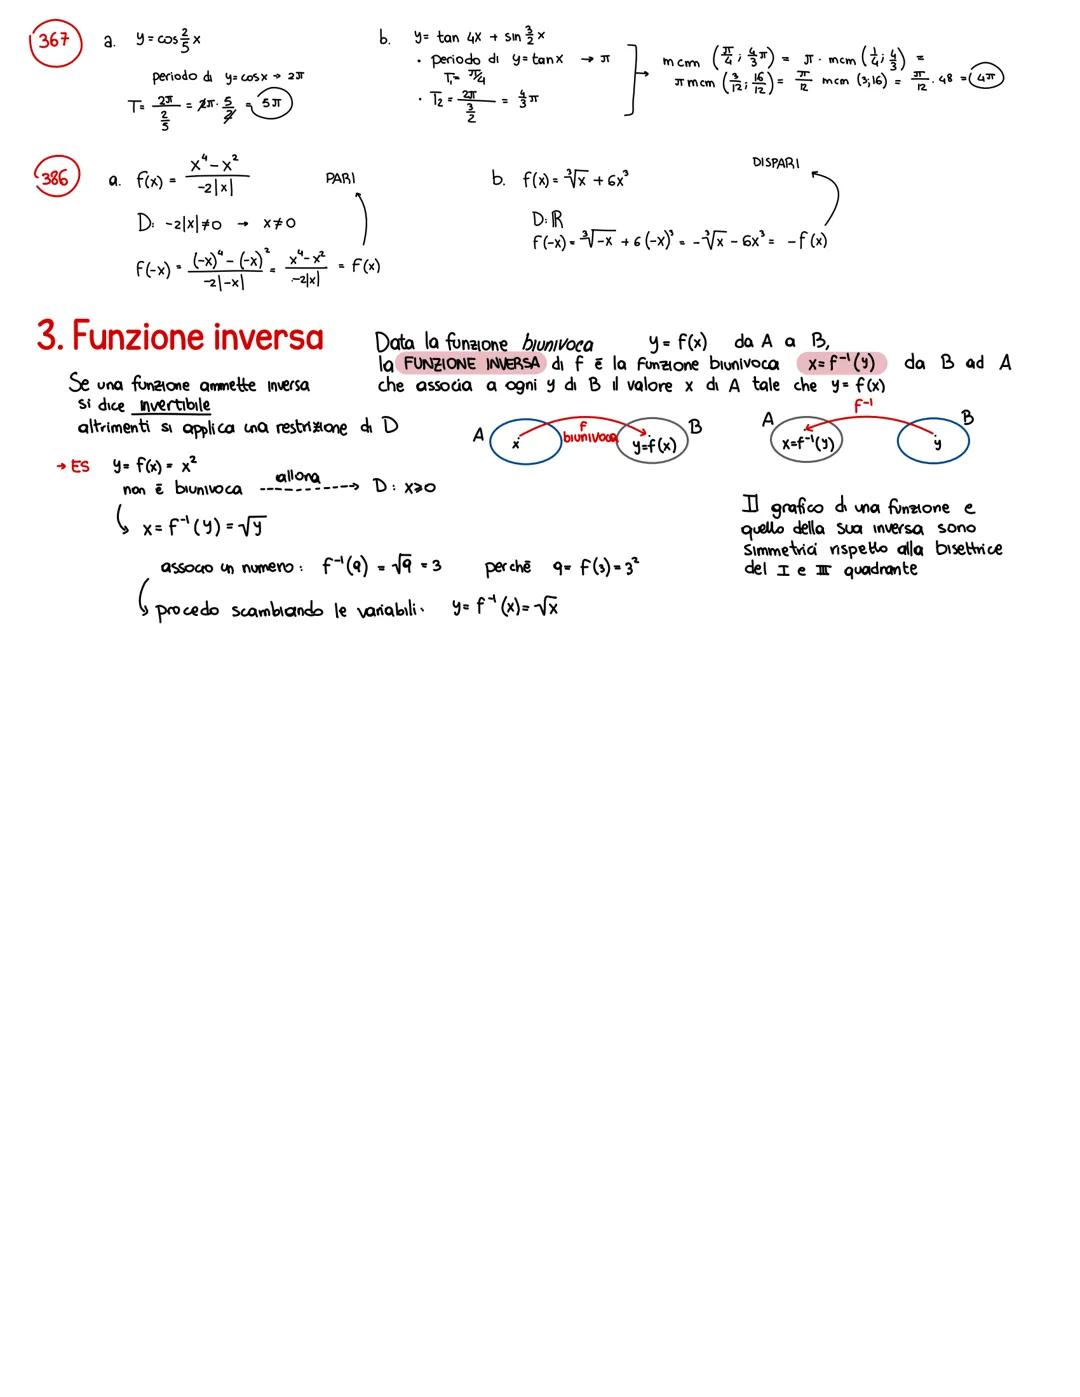 367 a. y = cos 2/5 x
periodo di y = cos x → 2π
T = 2π / (2/5) = 2π · 5/2 = 5π
b. y = tan 4x + sin 3/2 x
· periodo di y = tan x → π
T₁ = π/4
· T₂ = 2π / (3/2) = 4/3 π
mcm (π/4 ; 4/3 π) = π · mcm (1/4 ; 4/3) =
π mcm (3/12 ; 16/12) = π/12 mcm (3;16) = π/12 · 48 = 4π
386 a. f(x) = (x⁴ - x²) / (-2|x|) PARI
D: -2|x| ≠ 0 → x ≠ 0
f(-x) = ((-x)⁴ - (-x)²) / (-2|-x|) = (x⁴ - x²) / (-2|x|) = f(x)
b. f(x) = ∛x + 6x³ DISPARI
D: ℝ
f(-x) = ∛-x + 6(-x)³ = -∛x - 6x³ = -f(x)
3. Funzione inversa
Data la funzione biunivoca y = f(x) da A a B,
la FUNZIONE INVERSA di f ē la funzione biunivoca x = f⁻¹(y) da B ad A
che associa a ogni y di B il valore x di A tale che y = f(x)
Se una funzione ammette inversa
si dice invertibile
altrimenti si applica una restrizione di D
A x f biunivoca y=f(x) B
A x=f⁻¹(y) f⁻¹ y B
→ ES y = f(x) = x²
non ē biunivoca allora D: x⩾0
x = f⁻¹(y) = √y
associo un numero: f⁻¹(9) = √9 = 3 perchē 9 = f(3) = 3²
procedo scambiando le variabili: y = f⁻¹(x) = √x
Il grafico di una funzione e
quello della sua inversa sono
simmetrici rispetto alla bisettrice
del I e III quadrante